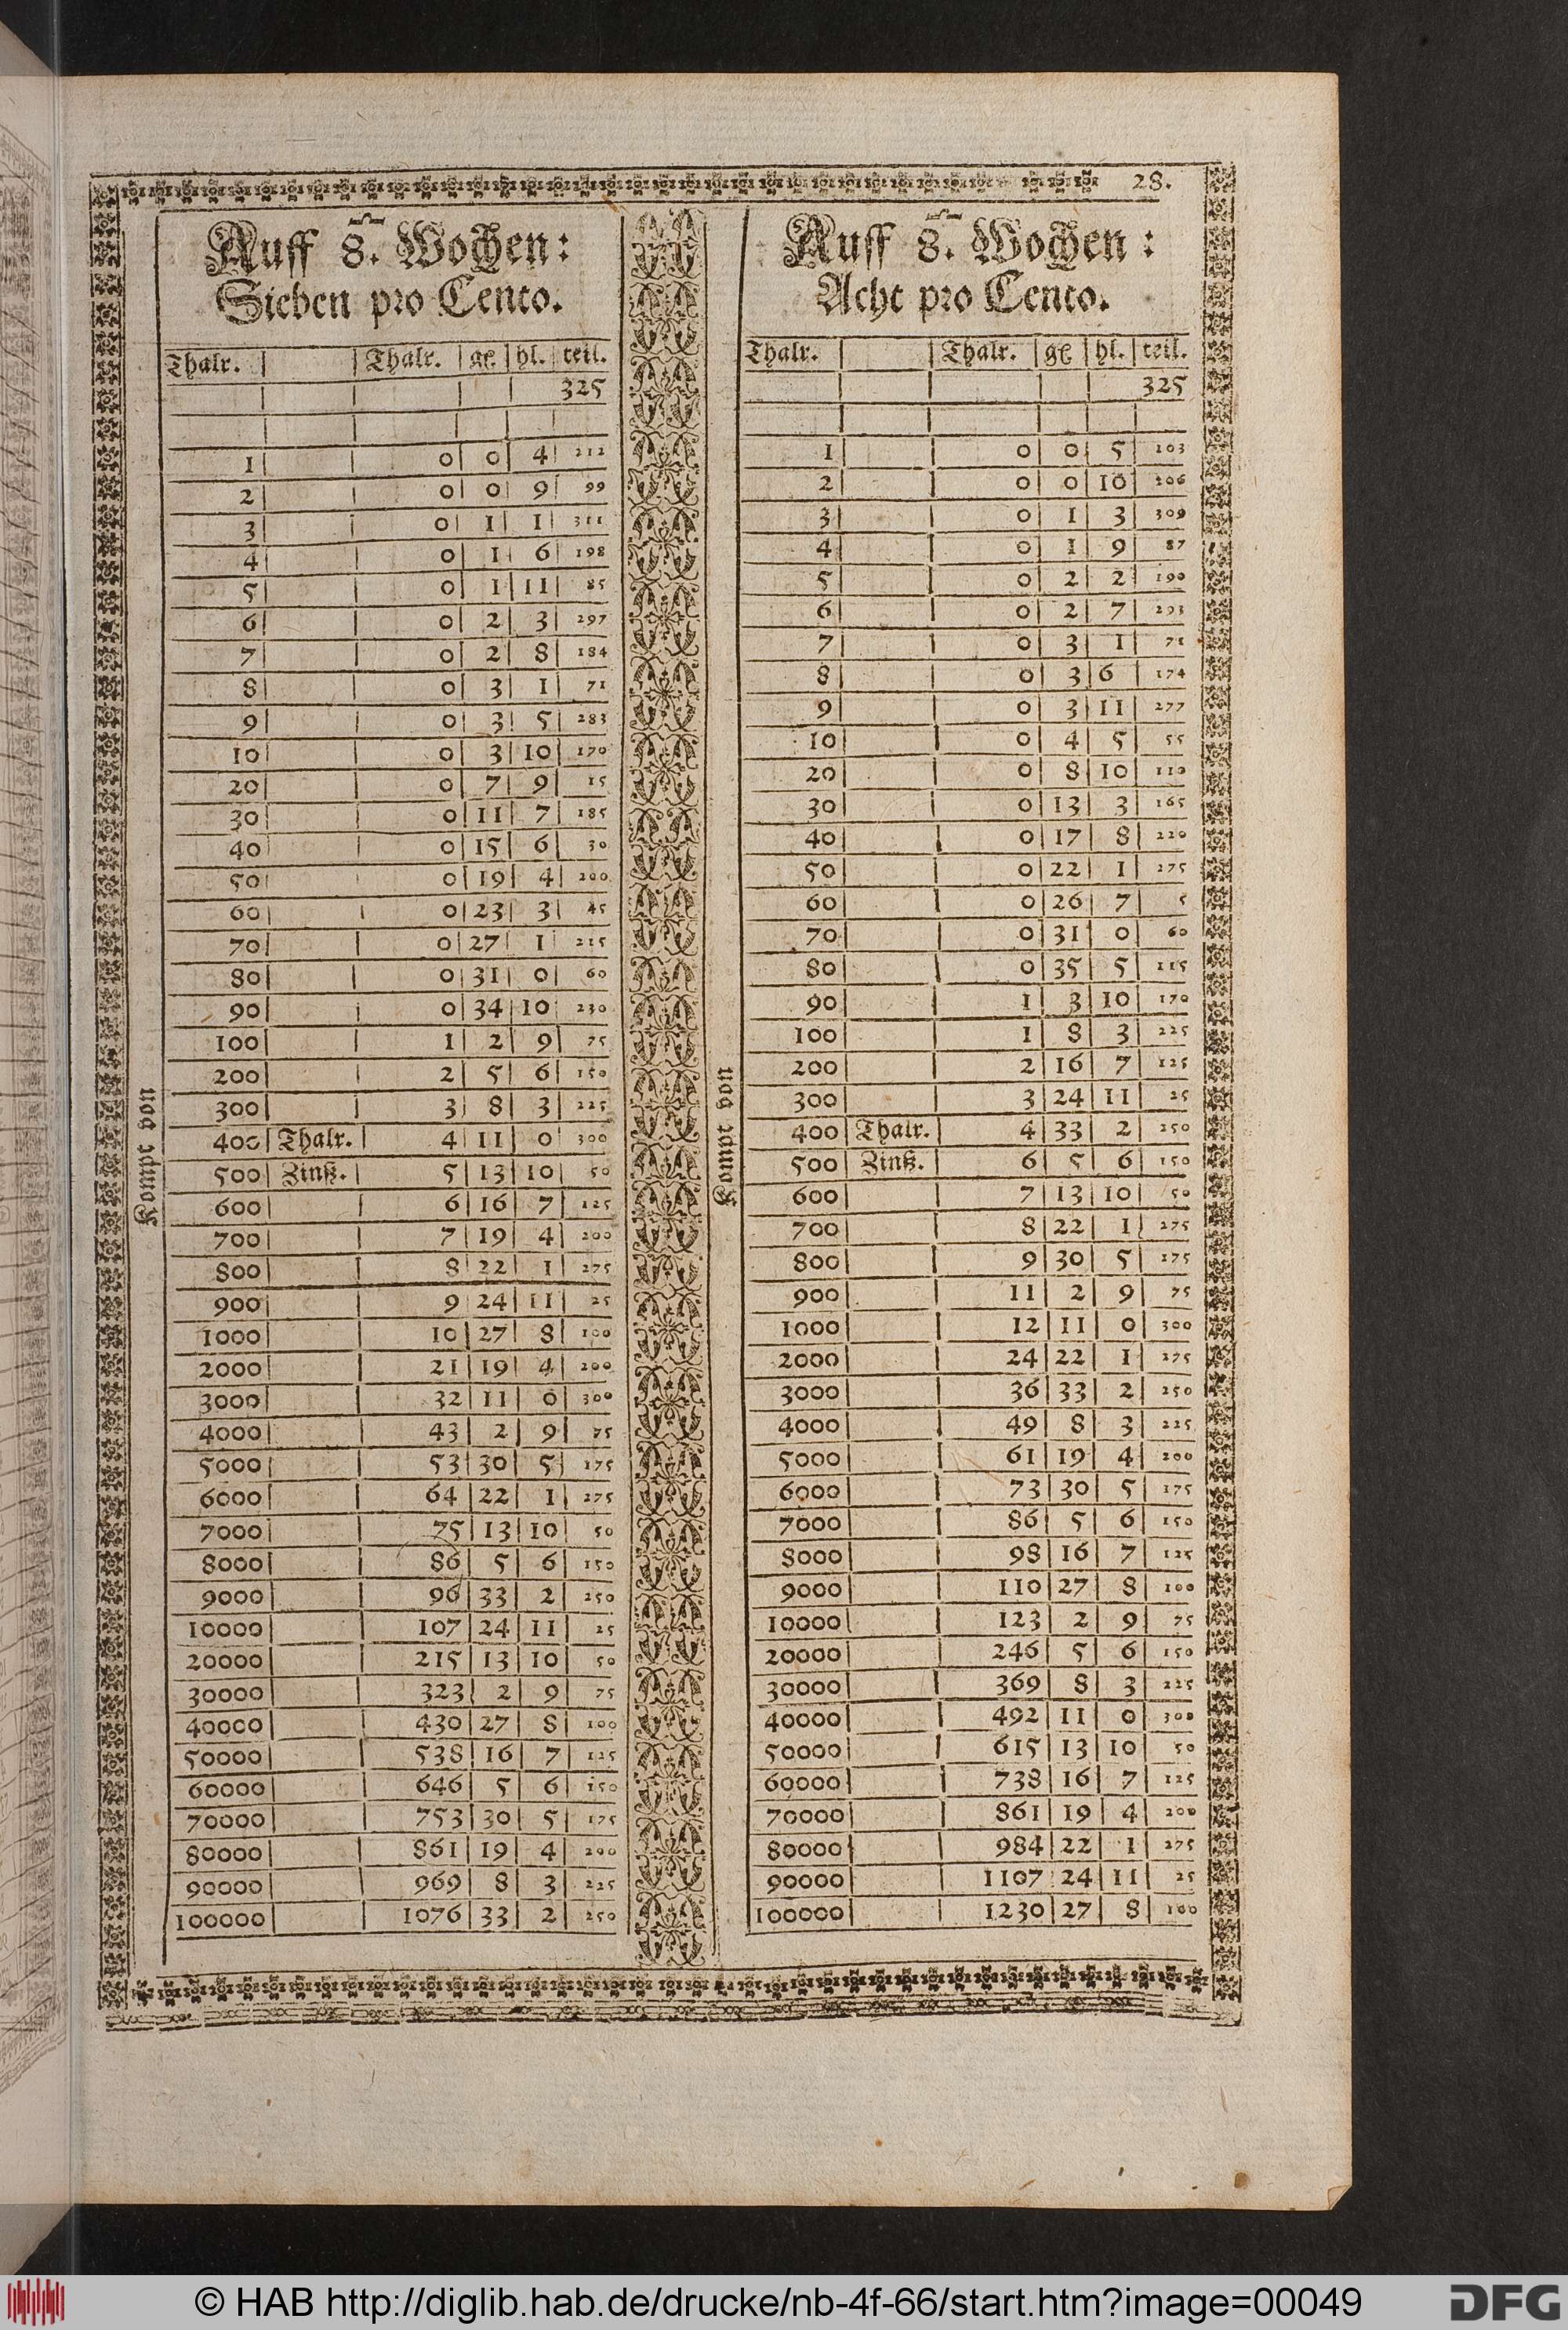 28.
Auff 8. Wochen:
Sieben pro Cento.
Thalr. Thalr. gl hl. teil.
325
1 0 0 4 212
2 0 0 9 99
3 0 1 1 311
4 0 1 6 198
5 0 1 11 85
6 0 2 3 297
7 0 2 8 184
8 0 3 1 71
9 0 3 5 283
10 0 3 10 170
20 0 7 9 15
30 0 11 7 185
40 0 15 6 30
50 0 19 4 200
60 0 23 3 45
70 0 27 1 215
80 0 31 0 60
90 0 34 10 230
100 1 2 9 75
200 2 5 6 150
300 3 8 3 225
400 Thalr. 4 11 0 300
500 Zinß. 5 13 10 50
600 6 16 7 125
700 7 19 4 200
800 8 22 1 275
900 9 24 11 25
1000 10 27 8 100
2000 21 19 4 200
3000 32 11 0 300
4000 43 2 9 75
5000 53 30 5 175
6000 64 22 1 275
7000 75 13 10 50
8000 86 5 6 150
9000 96 33 2 250
10000 107 24 11 25
20000 215 13 10 50
30000 323 2 9 75
40000 430 27 8 100
50000 538 16 7 125
60000 646 5 6 150
70000 753 30 5 175
80000 861 19 4 200
90000 969 8 3 225
100000 1076 33 2 250
Kompt von
Auff 8. Wochen:
Acht pro Cento.
Thalr. Thalr. gl hl. teil.
325
1 0 0 5 103
2 0 0 10 206
3 0 1 3 309
4 0 1 9 87
5 0 2 2 190
6 0 2 7 293
7 0 3 1 71
8 0 3 6 174
9 0 3 11 277
10 0 4 5 55
20 0 8 10 110
30 0 13 3 165
40 0 17 8 220
50 0 22 1 275
60 0 26 7 5
70 0 31 0 60
80 0 35 5 115
90 1 3 10 170
100 1 8 3 225
200 2 16 7 125
300 3 24 11 25
400 Thalr. 4 33 2 250
500 Zinß. 6 5 6 150
600 7 13 10 50
700 8 22 1 275
800 9 30 5 175
900 11 2 9 75
1000 12 11 0 300
2000 24 22 1 275
3000 36 33 2 250
4000 49 8 3 225
5000 61 19 4 200
6000 73 30 5 175
7000 86 5 6 150
8000 98 16 7 125
9000 110 27 8 100
10000 123 2 9 75
20000 246 5 6 150
30000 369 8 3 225
40000 492 11 0 300
50000 615 13 10 50
60000 738 16 7 125
70000 861 19 4 200
80000 984 22 1 275
90000 1107 24 11 25
100000 1230 27 8 100
Kompt von
© HAB http://diglib.hab.de/drucke/nb-4f-66/start.htm?image=00049
DFG